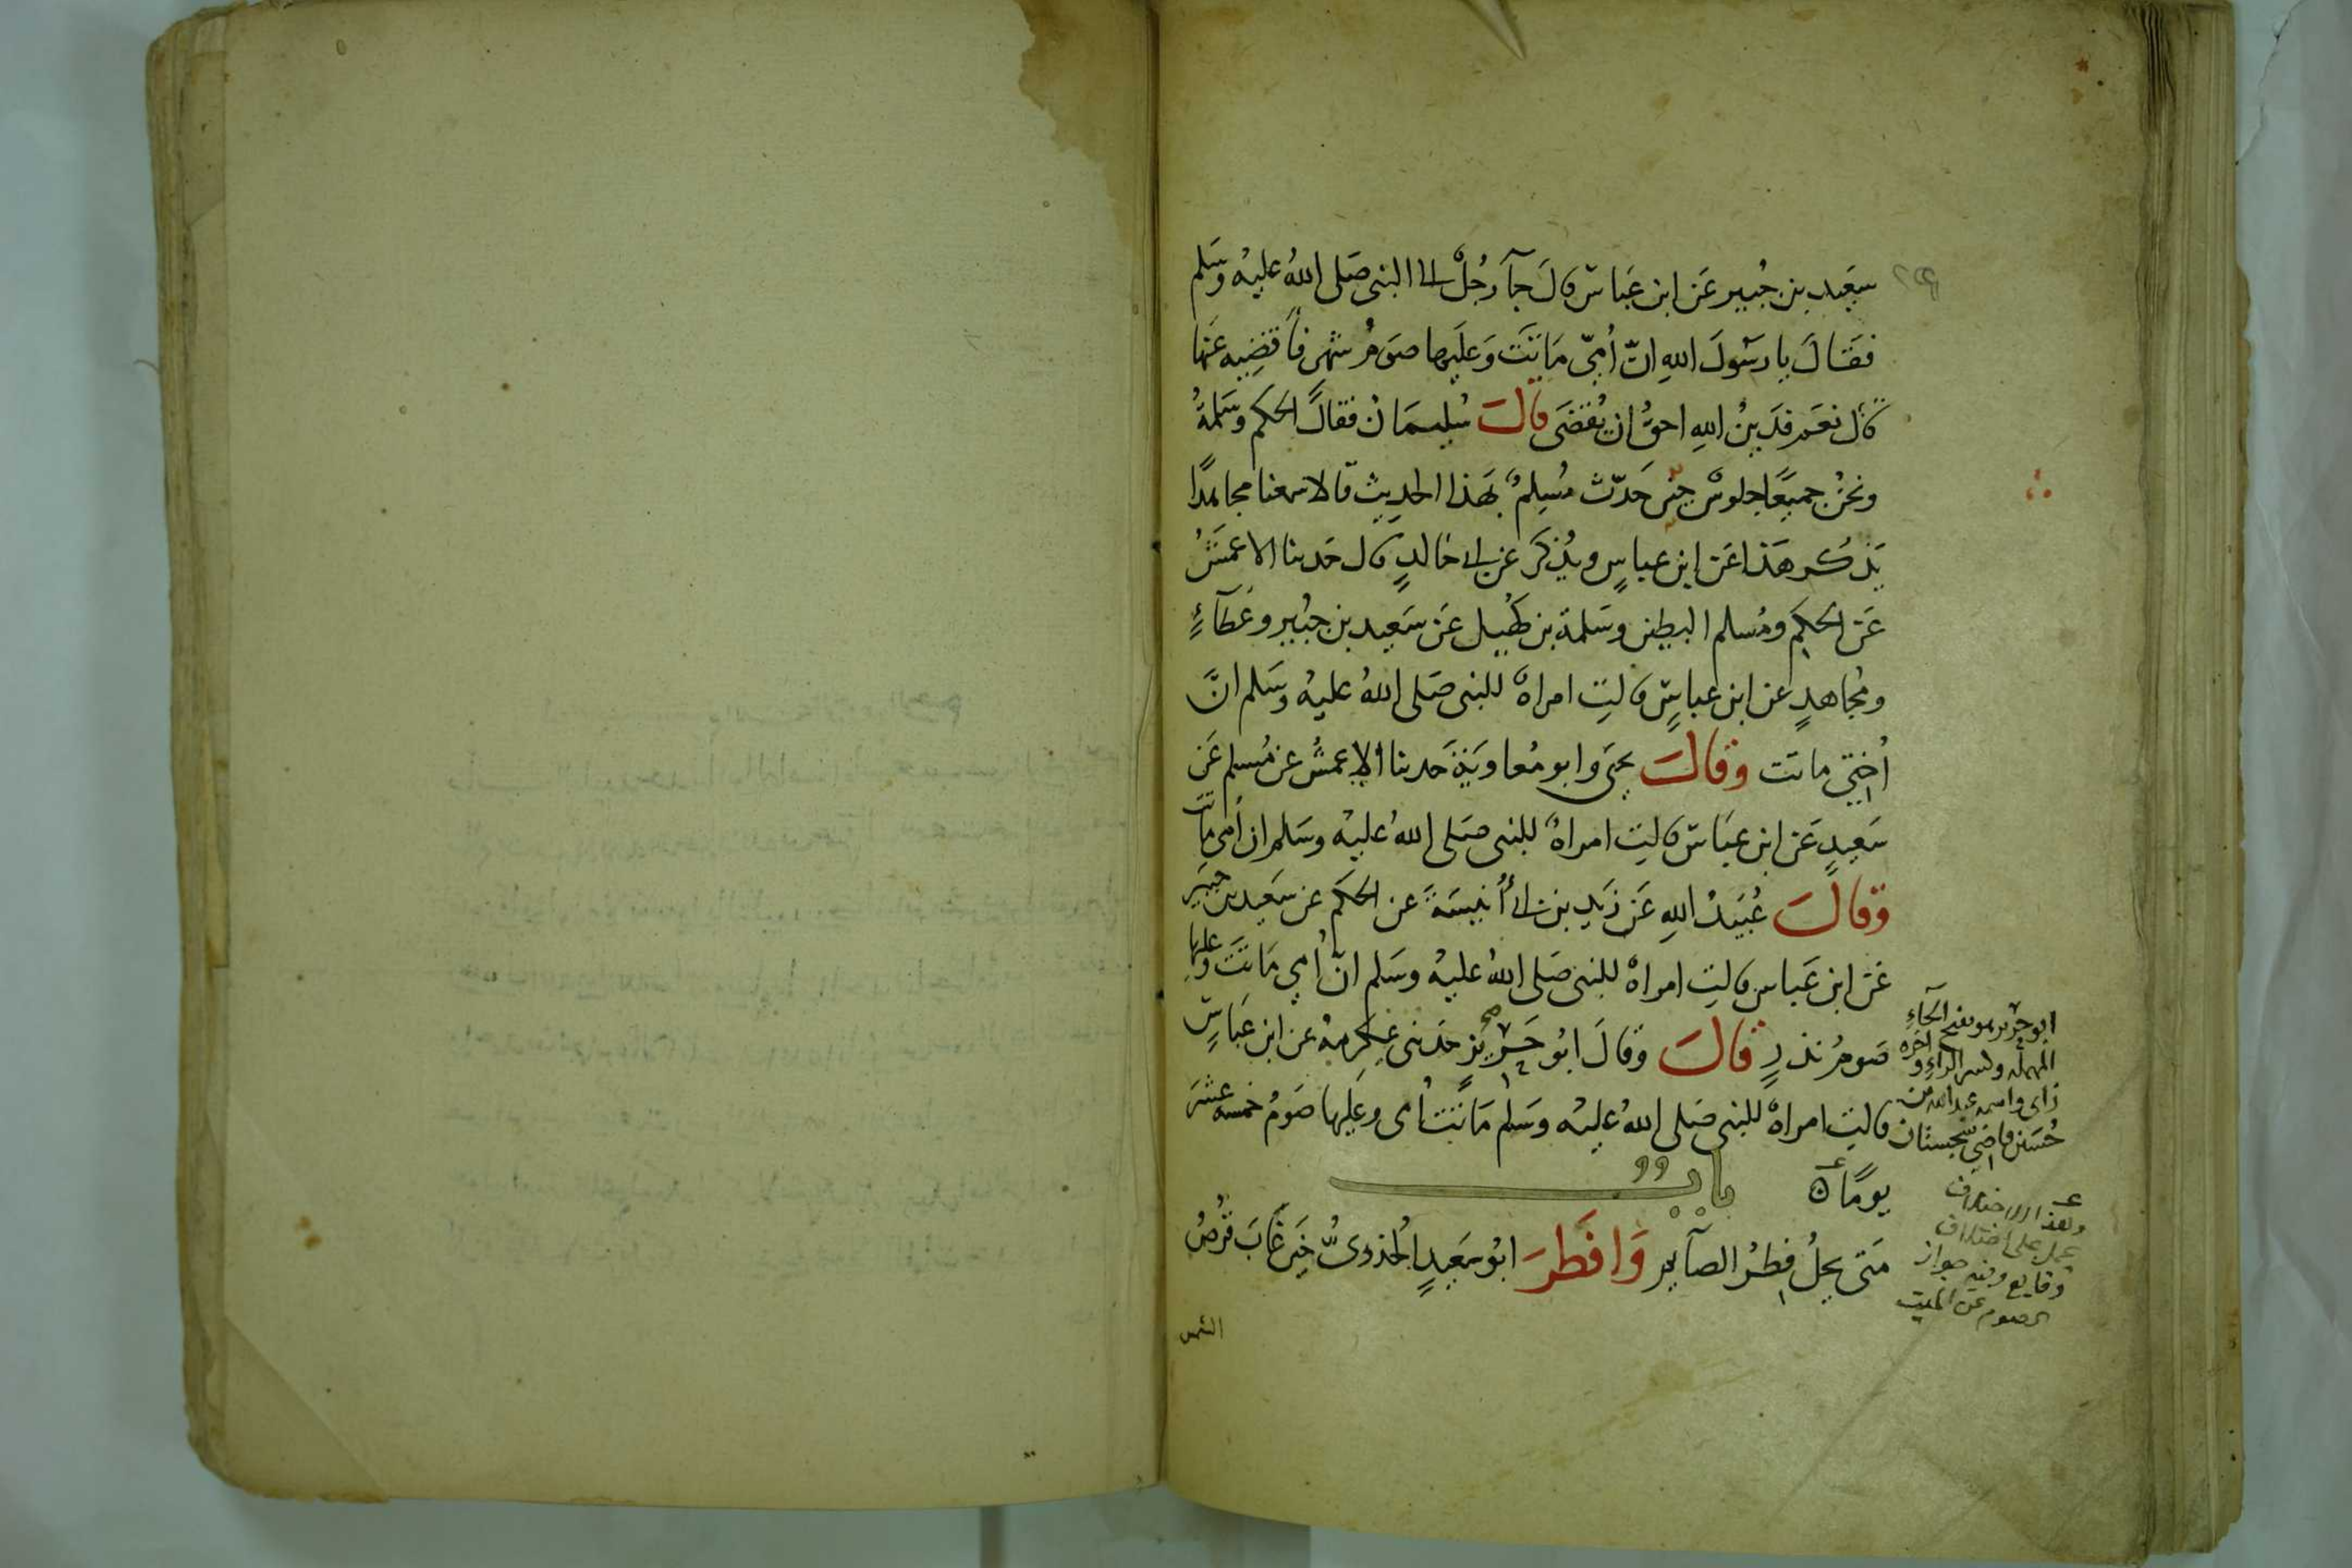 سعيد بن جُبير عَن ابن عَباسٍ قالَ جآ رَجُلٌ الى النبى صَلى اللهُ عليهْ وسَلم
فقَالَ يا رسَولَ اللهِ انّ اُمّى مَاتتَ وَعليها صوَمُ شهرٍ فأقضِيه عَنها
قال نعَم فدَينُ اللهِ احقُّ ان يُقضَى قالَ سُليمانُ فقالَ الحكم وسَلمةُ
ونحنُ جميعًا جلوسٌ حينَ حَدّث مُسلمٌ بهَذا الحديث قالا سمعنا مجاهدًا
يَذكر هَذا عَن ابن عباسٍ ويُذكَر عن ابى خالدٍ قال حَدثنا الاعمَشُ
عَن الحكمِ ومُسلم البطين وسَلمة بن كهُيل عَن سَعيد بن جبُير وعَطآءٍ
ومُجاهدٍ عن ابن عباسٍ قالتِ امراةٌ للنبى صَلى اللهُ عليهْ وسَلم انَّ
اُختِى ماتت وقالَ يحيَى وابو مُعاويَةَ حَدثنا الاعمشُ عن مُسلم عَن
سَعيدٍ عَن ابن عبَاسٍ قالتِ امراةٌ للنبى صَلى اللهُ عليهْ وسَلم ان اُمى ماتت
وقالَ عُبَيدُ اللهِ عَن زيَدِ بن ابى اُنيسَةَ عن الحكَم عن سَعيد بن جبَير
عَن ابن عَباس قالتِ امراةٌ للنبى صَلى اللهُ عليهْ وسَلم انّ اُمِى مَاتتَ وعليها
صَومُ نذرٍ قالَ وقالَ ابُو حَريزٍ حَدثنى عِكرِمةُ عن ابن عَباسٍ
قالتِ امراةٌ للنبى صَلى اللهُ عليهْ وسَلم مَاتت اُمى وعَليها صَومُ خمسه عَشرَ
يومًا
باب
مَتى يحِلُ فِطرُ الصآيم وَافطَرَ ابُو سَعيدٍ الخدرىُّ حيَن غَابَ قُرصُ
الشمس
ابو حريز هو بفتح الحآءِ
المهمله وكسر الراءِ واخره
زاى واسمه عبد الله بن
حُسَين قاضى سجستان
وهذا الاختلاف
يحمل على اختلاف
وقايع وفيه جواز
الصوم عن الميت